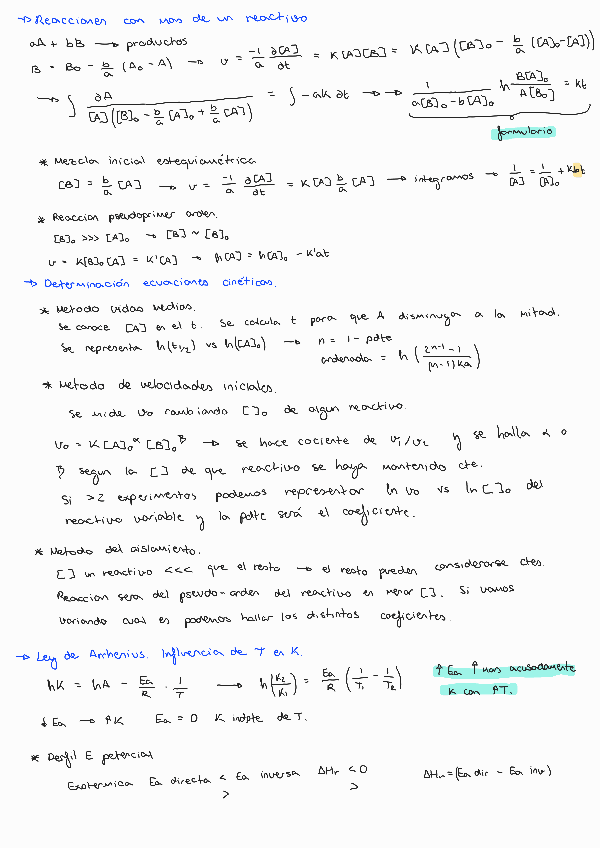 → Reacciones con mas de un reactivo
aA + bB → productos
B = B₀ - b/a (A₀ - A) → v = -1/a ∂[A]/∂t = K[A][B] = K[A]([B]₀ - b/a ([A]₀-[A]))
→ ∫ ∂A / [A]([B]₀ - b/a [A]₀ + b/a [A]) = ∫ -ak ∂t → → 1/(a[B]₀ - b[A]₀) ln B[A]₀/A[B₀] = kt
formulario
* Mezcla inicial estequiométrica
[B] = b/a [A] → v = -1/a ∂[A]/∂t = K[A] b/a [A] → integramos → 1/[A] = 1/[A]₀ + Kbt
* Reaccion pseudoprimer orden.
[B]₀ >>> [A]₀ → [B] ~ [B]₀
v = K[B]₀[A] = K'[A] → ln[A] = ln[A]₀ - K'at
→ Determinación ecuaciones cinéticas.
* Metodo vidas medias.
Se conoce [A] en el t. Se calcula t para que A disminuya a la mitad.
Se representa ln(t₁/₂) vs ln([A]₀) → n = 1 - pdte
ordenada = ln (2ⁿ⁻¹ - 1 / (n-1)Ka)
* Metodo de velocidades iniciales.
Se mide v₀ cambiando [ ]₀ de algun reactivo.
v₀ = K[A]₀^α [B]₀^β → se hace cociente de v₁/v₂ y se halla α o
β segun la [ ] de que reactivo se haya mantenido cte.
Si >2 experimentos podemos representar ln v₀ vs ln[ ]₀ del
reactivo variable y la pdte será el coeficiente.
* Metodo del aislamiento.
[ ] un reactivo <<< que el resto → el resto pueden considerarse ctes.
Reaccion sera del pseudo-orden del reactivo en menor [ ]. Si vamos
variando cual es podemos hallar los distintos coeficientes.
→ Ley de Arrhenius. Influencia de T en K.
lnK = lnA - Ea/R · 1/T → ln(K₂/K₁) = Ea/R (1/T₁ - 1/T₂)
↑ Ea ↑ mas acusadamente
K con ↑T.
↓ Ea → ↑K Ea = 0 K indpte de T.
* Perfil E potencial
Exotermica Ea directa < Ea inversa ΔHr < 0 ΔHr = (Ea dir - Ea inv)
> >